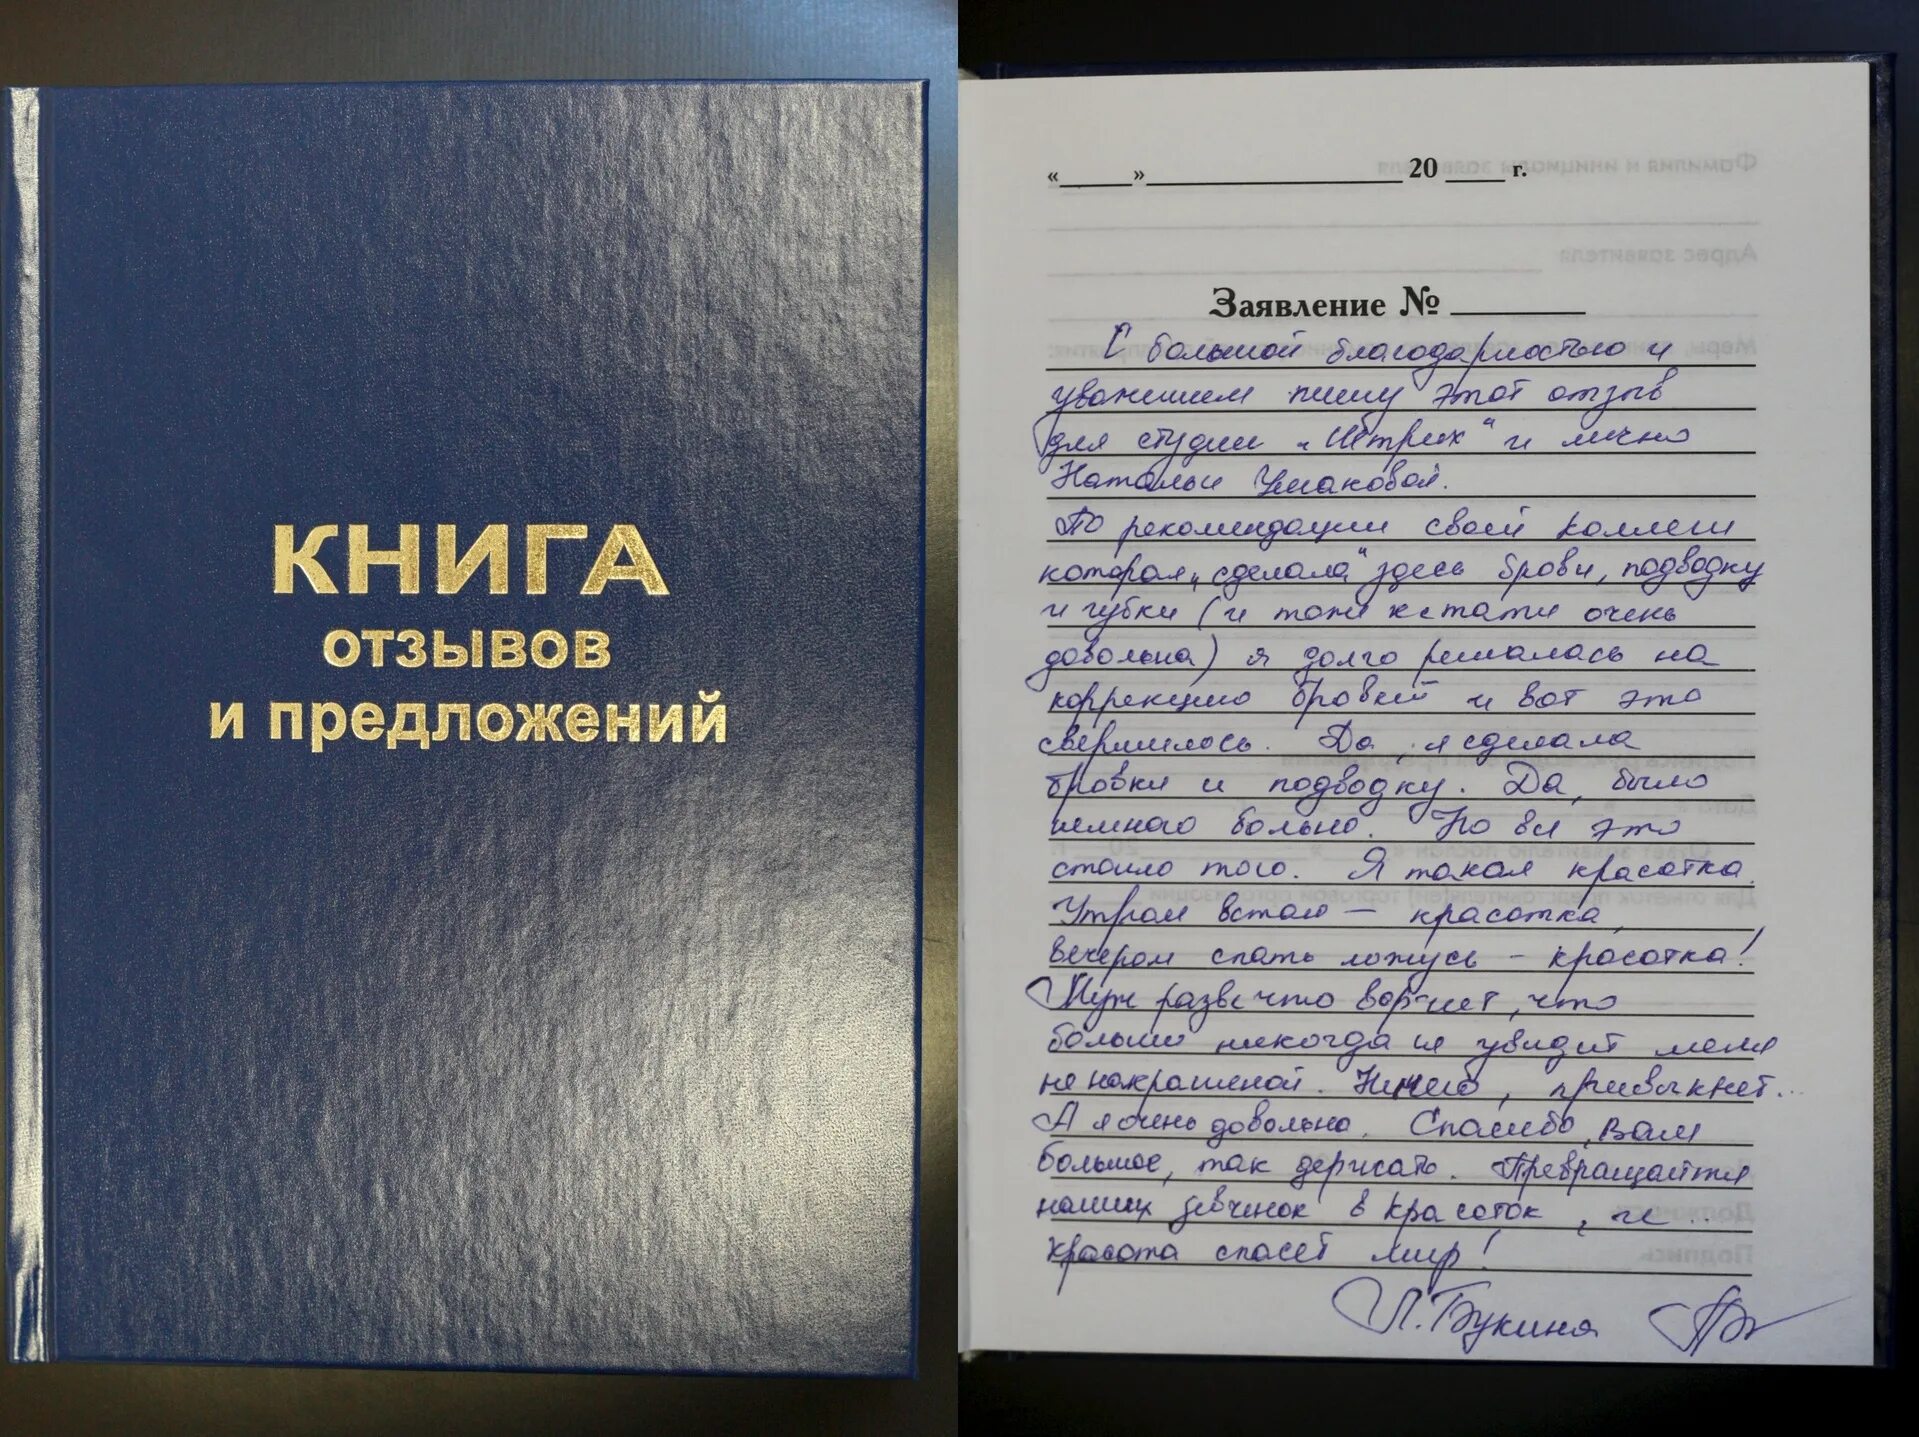 КНИГА
отзывов
и предложений
«_____»__________________ 20 ____ г.
Заявление № _________
С большой благодарностью и
уважением пишу этот отзыв
для студии „Штрих" и лично
Натальи Ушаковой.
По рекомендации своей коллеги
которая „сделала" здесь брови, подводку
и губки (и тоже кстати очень
довольна) я долго решалась на
коррекцию бровей и вот это
свершилось. Да, я сделала
бровки и подводку. Да, было
немного больно. Но всё это
стоило того. Я такая красотка.
Утром встаю — красотка,
вечером спать ложусь – красотка!
Муж разве что ворчит, что
больше никогда не увидит меня
не накрашеной. Ничего, привыкнет...
А я очень довольна. Спасибо, Вам
большое, так держать. Превращайте
наших девчёнок в красоток, и ...
красота спасёт мир!
Л. Букина
Фамилия и инициалы заявителя
Адрес заявителя
Подпись